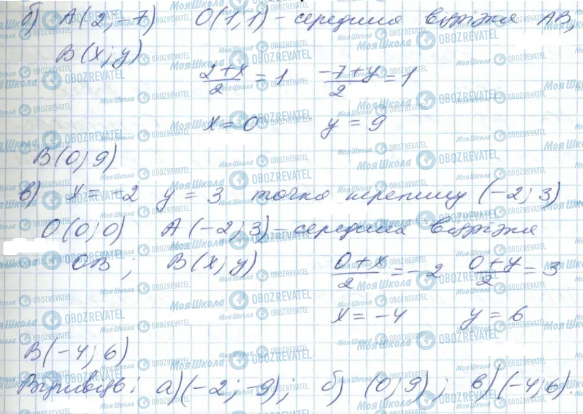 б) A(2; -7) O(1, 1) - середина відрізка AB,
B(x; y)
(2+x)/2 = 1 (-7+y)/2 = 1
x = 0 y = 9
B(0; 9)
в) x = -2 y = 3 точка перетину (-2; 3)
O(0; 0) A(-2; 3) - середина відрізка
OB; B(x; y) (0+x)/2 = -2 (0+y)/2 = 3
x = -4 y = 6
B(-4; 6)
Відповідь: а) (-2; -9), б) (0; 9); в) (-4; 6).